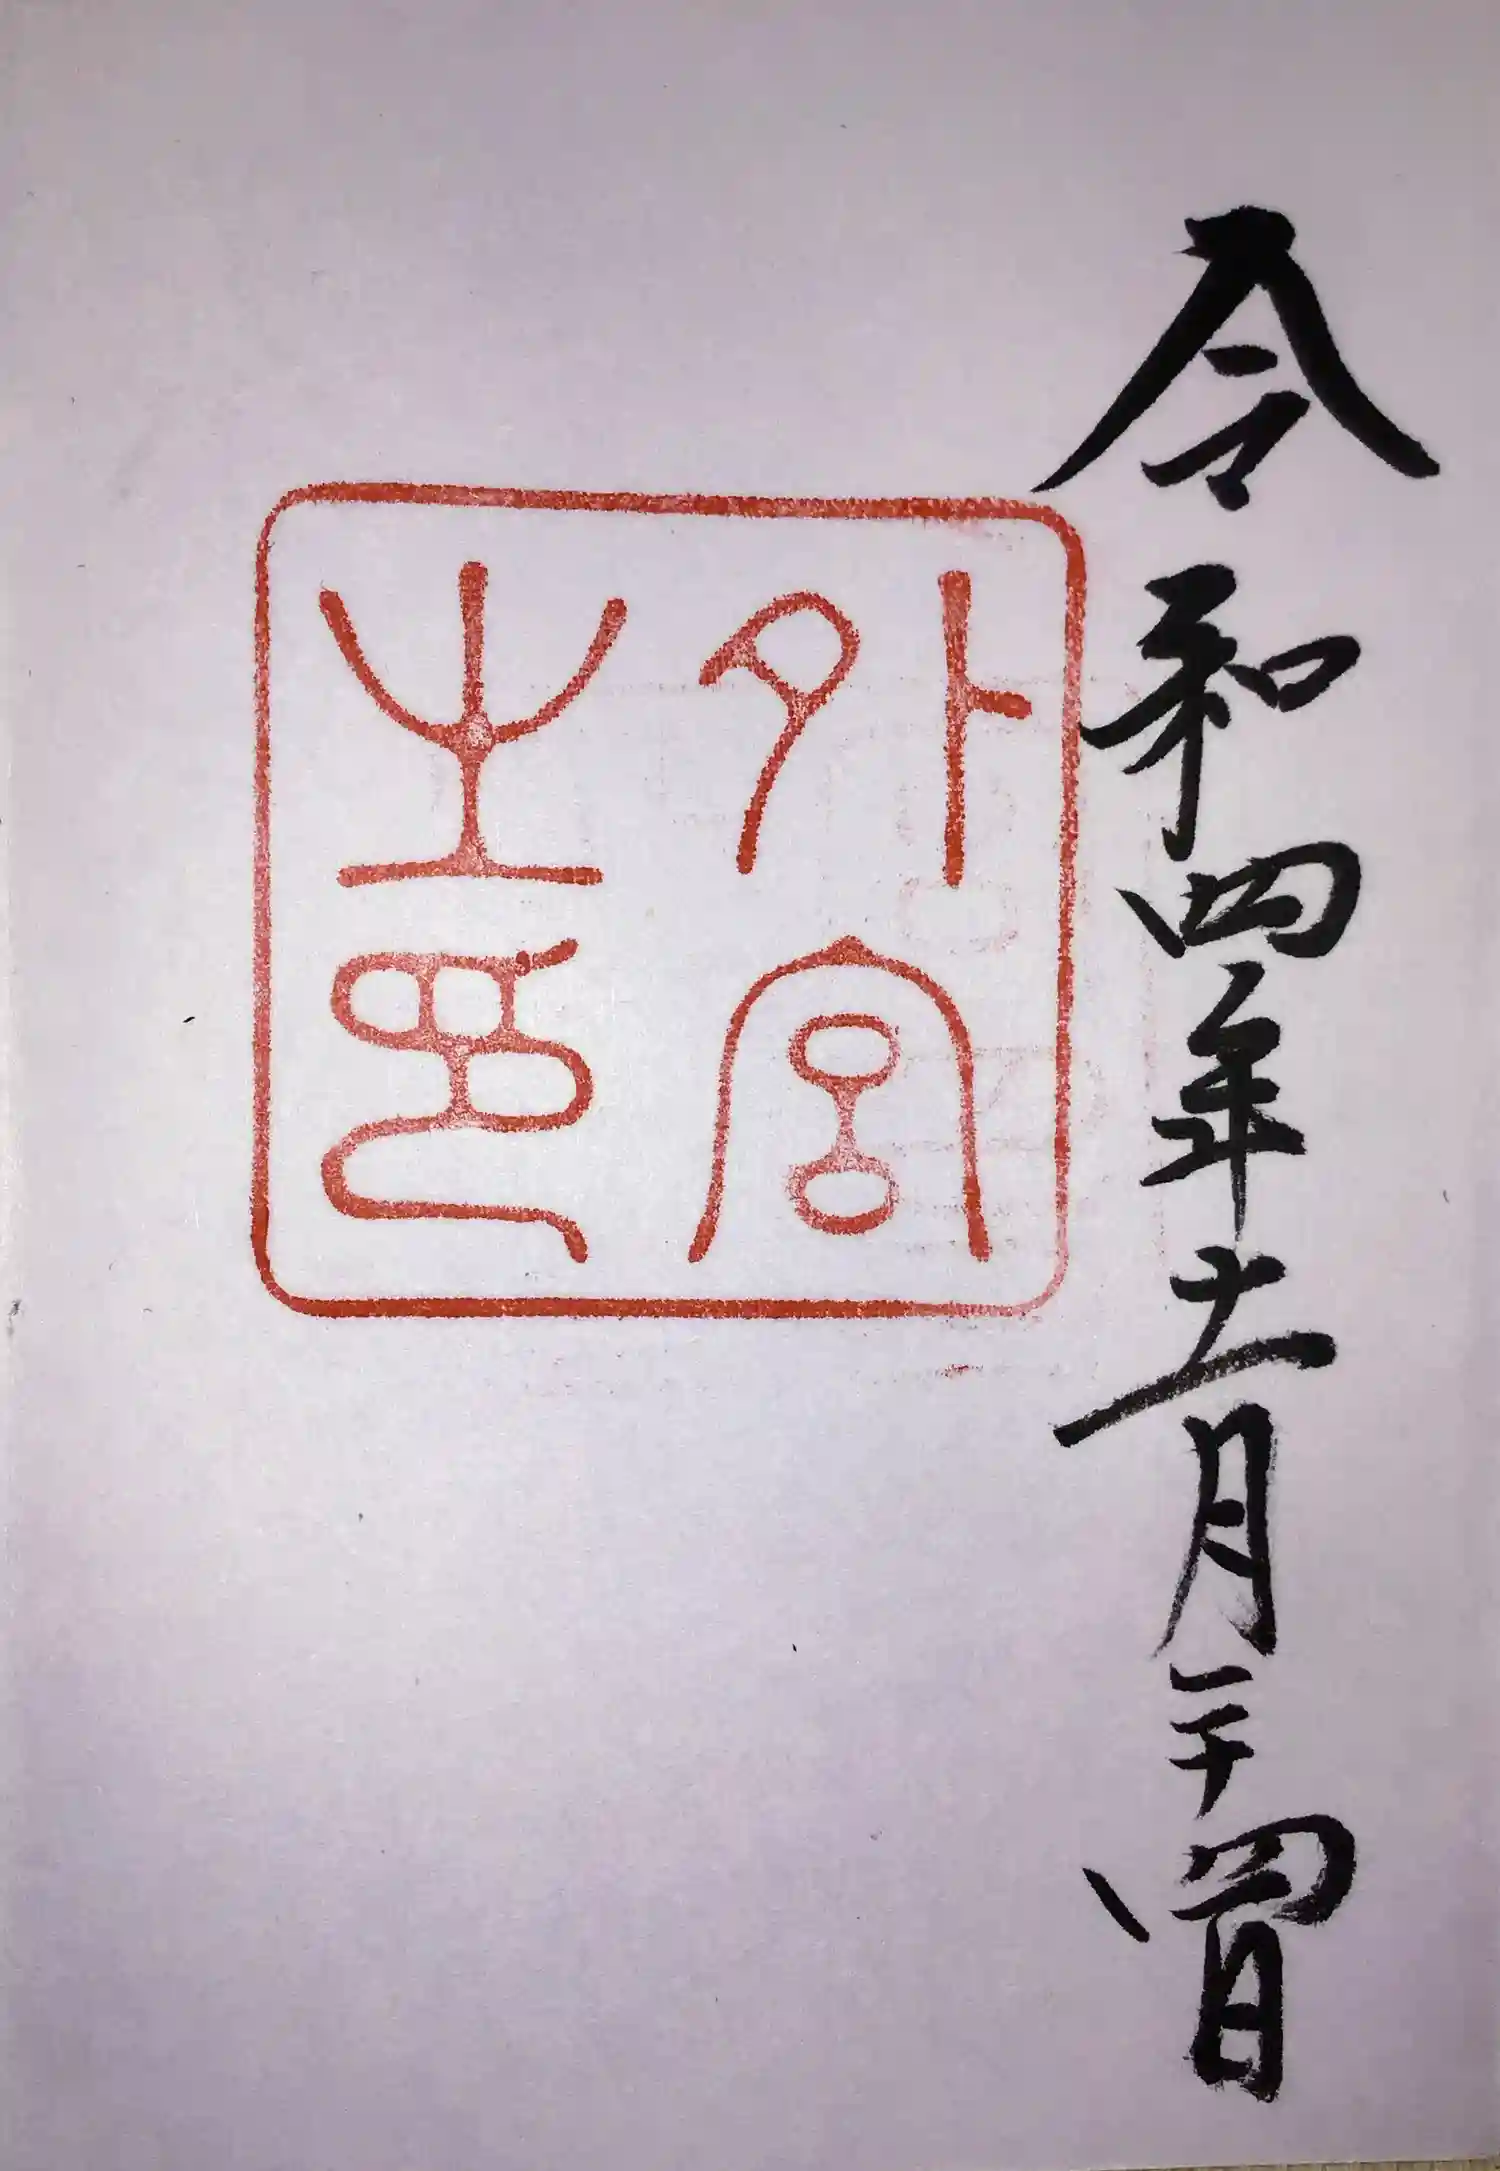 令和四年十一月二十四日
外宮
之印